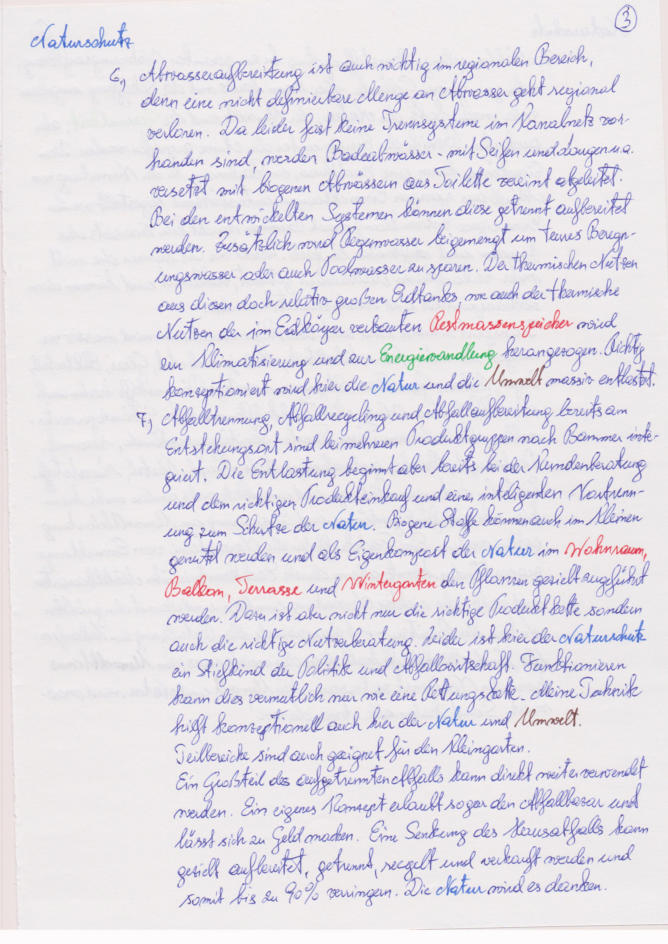 3
Naturschutz
6, Abwasseraufbereitung ist auch wichtig im regionalen Bereich,
denn eine nicht definierbare Menge an Abwasser geht regional
verloren. Da leider fast keine Trennsysteme im Kanalnetz vor-
handen sind, werden Badeabwässer - mit Seifen und Laugen u.a.
versetzt mit biogenen Abwässern aus Toilette vereint abgeleitet.
Bei den entwickelten Systemen können diese getrennt aufbereitet
werden. Zusätzlich wird Regenwasser beigemengt um teures Beregn-
ungswasser oder auch Poolwasser zu sparen. Der thermischen Nutzen
aus diesen doch relativ großen Erdtanks, wie auch der thermische
Nutzen der im Erdkörper verbauten Restmassenspeicher wird
zur Klimatisierung und zur Energiewandlung herangezogen. Richtig
konzeptioniert wird hier die Natur und die Umwelt massiv entlastet.
7, Abfalltrennung, Abfallrecycling und Abfallaufbereitung bereits am
Entstehungsort sind bei mehreren Produktgruppen nach Bammer inte-
griert. Die Entlastung beginnt aber bereits bei der Kundenberatung
und dem richtigen Produkteinkauf und einer inteligenten Vortrenn-
ung zum Schutze der Natur. Biogene Stoffe können auch im Kleinen
genutzt werden und als Eigenkompost der Natur im Wohnraum,
Balkon, Terrasse und Wintergarten den Pflanzen gezielt zugeführt
werden. Dazu ist aber nicht nur die richtige Produktkette sondern
auch die richtige Nutzerberatung. Leider ist hier der Naturschutz
ein Stiefkind der Politik und Abfallwirtschaft. Funktionieren
kann dies vermutlich nur wie eine Rettungskette. Meine Technik
hilft konzeptionell auch hier der Natur und Umwelt.
Teilbereiche sind auch geeignet für den Kleingarten.
Ein Großteil des aufgetrennten Abfalls kann direkt weiterverwendet
werden. Ein eigenes Konzept erlaubt sogar den Abfallbasar und
lässt sich zu Geld machen. Eine Senkung des Hausabfalls kann
gezielt aufbereitet, getrennt, recycelt und verkauft werden und
somit bis zu 90% verringern. Die Natur wird es danken.